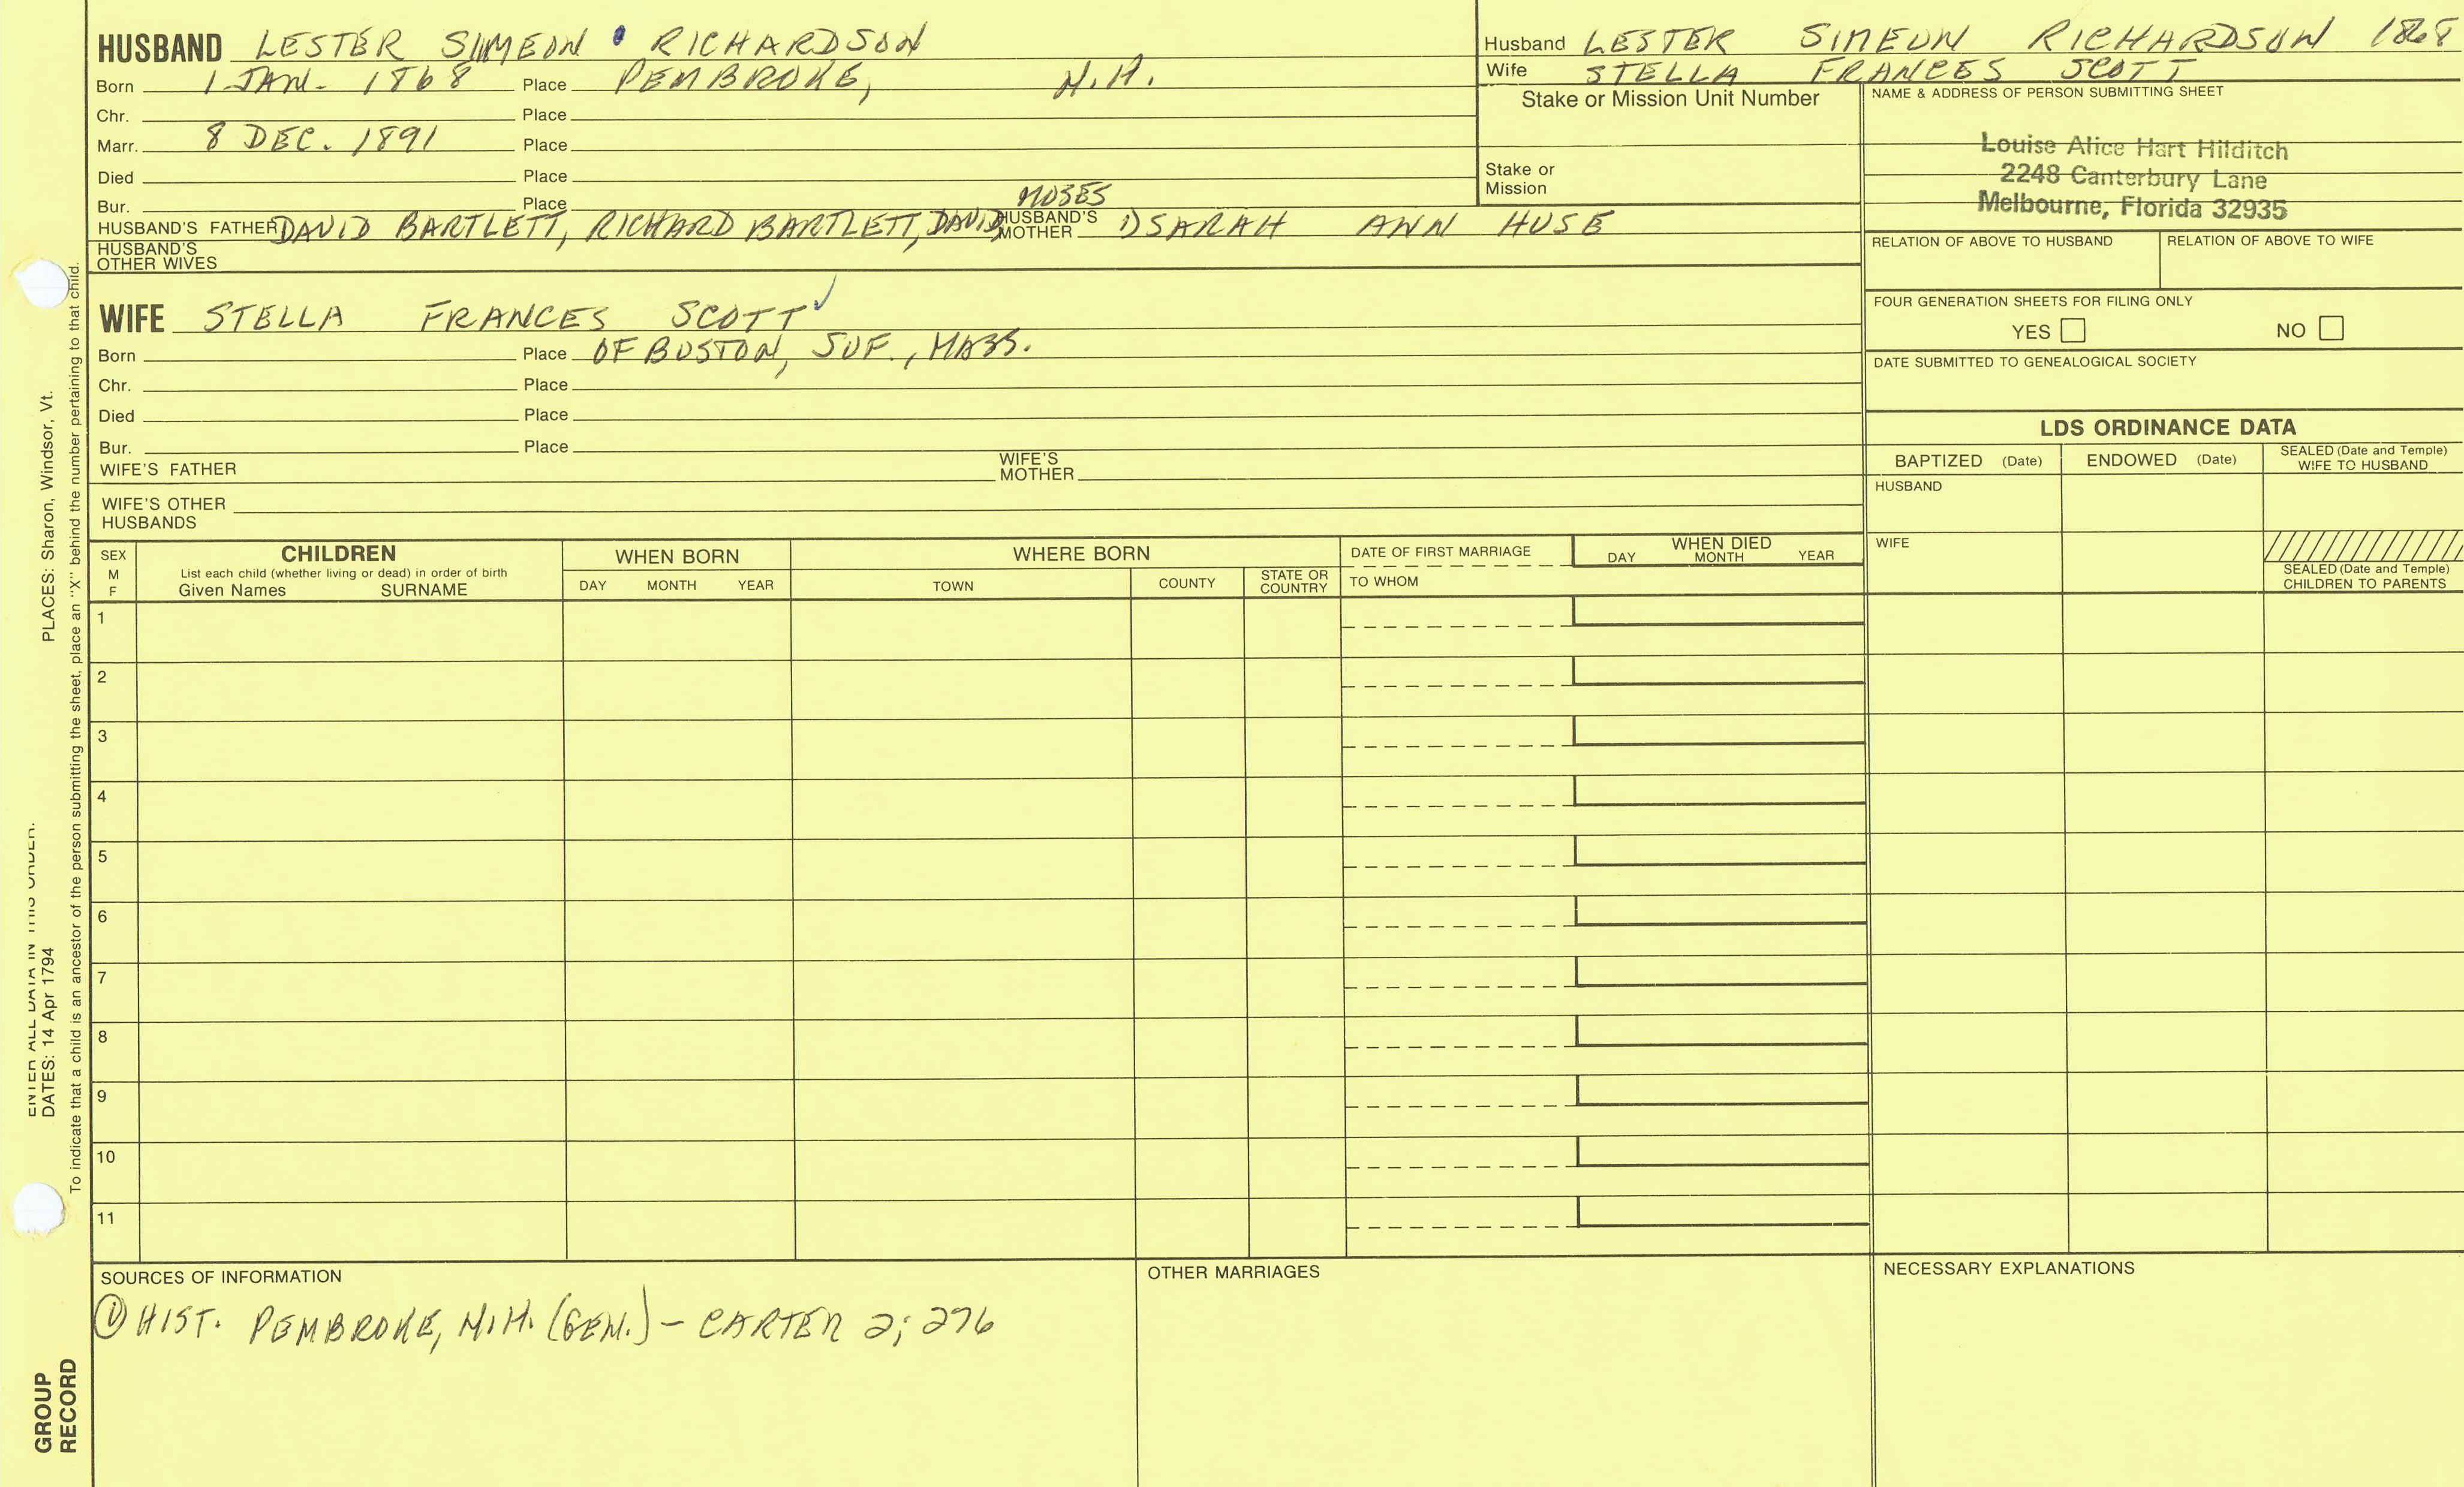 HUSBAND LESTER SIMEON RICHARDSON
Born 1 JAN. 1868 Place PEMBROKE, N.H.
Chr. Place
Marr. 8 DEC. 1891 Place
Died Place
Bur. Place
MOSES
HUSBAND'S FATHER DAVID BARTLETT, RICHARD BARTLETT, DAVID HUSBAND'S MOTHER 1) SARAH ANN HUSE
HUSBAND'S OTHER WIVES
Husband LESTER SIMEON RICHARDSON 1868
Wife STELLA FRANCES SCOTT
Stake or Mission Unit Number
Stake or
Mission
NAME & ADDRESS OF PERSON SUBMITTING SHEET
Louise Alice Hart Hilditch
2248 Canterbury Lane
Melbourne, Florida 32935
RELATION OF ABOVE TO HUSBAND RELATION OF ABOVE TO WIFE
FOUR GENERATION SHEETS FOR FILING ONLY
YES NO
DATE SUBMITTED TO GENEALOGICAL SOCIETY
WIFE STELLA FRANCES SCOTT ✓
Born Place OF BOSTON, SUF., MASS.
Chr. Place
Died Place
Bur. Place
WIFE'S FATHER WIFE'S MOTHER
WIFE'S OTHER
HUSBANDS
LDS ORDINANCE DATA
BAPTIZED (Date) ENDOWED (Date) SEALED (Date and Temple) WIFE TO HUSBAND
HUSBAND
WIFE
SEALED (Date and Temple)
CHILDREN TO PARENTS
SEX
M
F
CHILDREN
List each child (whether living or dead) in order of birth
Given Names SURNAME
WHEN BORN
DAY MONTH YEAR
WHERE BORN
TOWN COUNTY STATE OR COUNTRY
DATE OF FIRST MARRIAGE
TO WHOM
WHEN DIED
DAY MONTH YEAR
1
2
3
4
5
6
7
8
9
10
11
SOURCES OF INFORMATION
① HIST. PEMBROKE, N.H. (GEN.) - CARTER 2; 276
OTHER MARRIAGES
NECESSARY EXPLANATIONS
ENTER ALL DATA IN THIS ORDER:
DATES: 14 Apr 1794 PLACES: Sharon, Windsor, Vt.
To indicate that a child is an ancestor of the person submitting the sheet, place an "X" behind the number pertaining to that child.
GROUP
RECORD